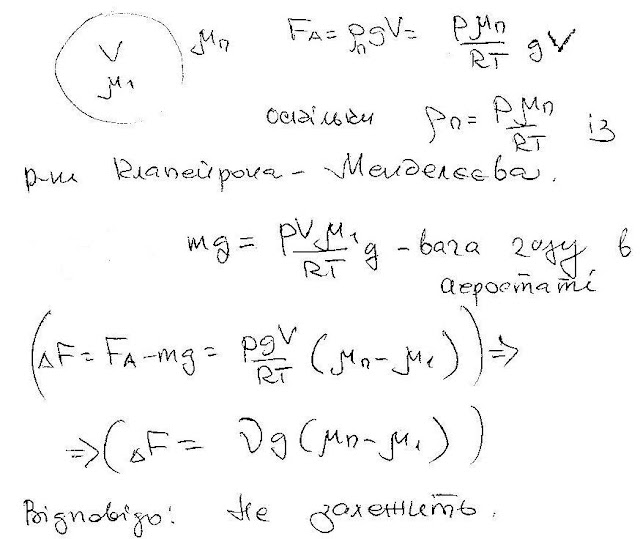 V μп F_A = ρ_п gV = pμп/RT gV
μ₁
оскільки ρп = pμп/RT із
р-ня Клапейрона - Менделєєва.
mg = pVμ₁/RT g - вага газу в
аеростаті
(ΔF = F_A - mg = pgV/RT (μп - μ₁)) ⇒
⇒ (ΔF = νg(μп - μ₁))
Відповідь: не залежить.